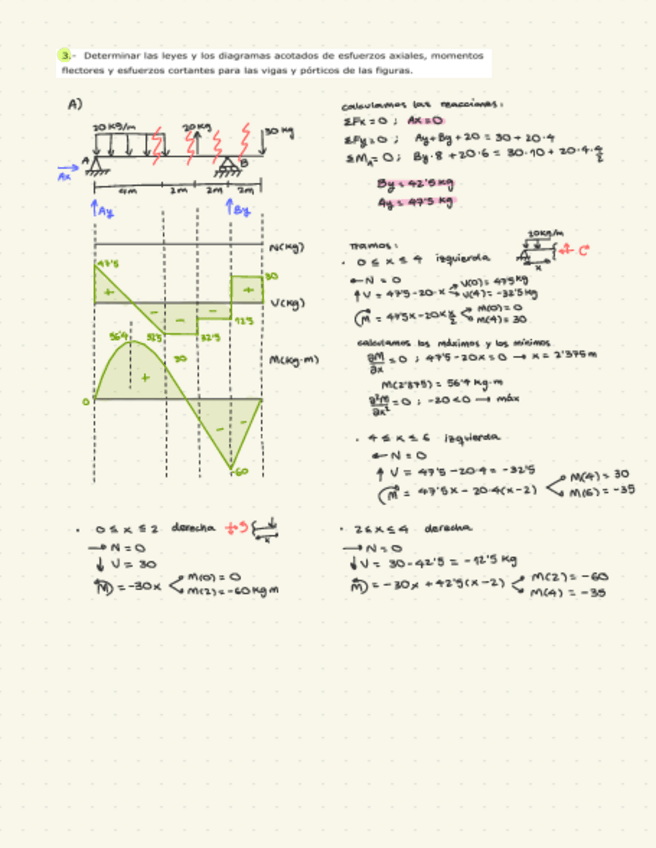 3.- Determinar las leyes y los diagramas acotados de esfuerzos axiales, momentos
flectores y esfuerzos cortantes para las vigas y pórticos de las figuras.
A)
20 kg/m
20 kg
30 kg
A
B
Ax
4m
2m
2m
2m
Ay
By
N(kg)
47'5
30
+
V(kg)
-
-
-
32'5
32'5
12'5
56'4
30
M(kg·m)
+
0
- -
-60
calculamos las reacciones:
ΣFx = 0 ; Ax = 0
ΣFy = 0 ; Ay + By + 20 = 30 + 20·4
ΣM_A = 0 ; By·8 + 20·6 = 30·10 + 20·4·4/2
By = 42'5 kg
Ay = 47'5 kg
Tramos:
· 0 ≤ x ≤ 4 izquierda
20kg/m
x
← N = 0
↑ V = 47'5 - 20·x
V(0) = 47'5kg
V(4) = -32'5kg
M = 47'5x - 20x x/2
M(0) = 0
M(4) = 30
calculamos los máximos y los mínimos
∂M/∂x = 0 ; 47'5 - 20x = 0 → x = 2'375 m
M(2'375) = 56'4 kg·m
∂²M/∂x² = 0 ; -20 < 0 → máx
· 4 ≤ x ≤ 6 izquierda
← N = 0
↑ V = 47'5 - 20·4 = -32'5
M = 47'5x - 20·4(x-2)
M(4) = 30
M(6) = -35
· 0 ≤ x ≤ 2 derecha
x
→ N = 0
↓ V = 30
M = -30x
M(0) = 0
M(2) = -60 kg m
· 2 ≤ x ≤ 4 derecha
→ N = 0
↓ V = 30 - 42'5 = -12'5 kg
M = -30x + 42'5(x-2)
M(2) = -60
M(4) = -35